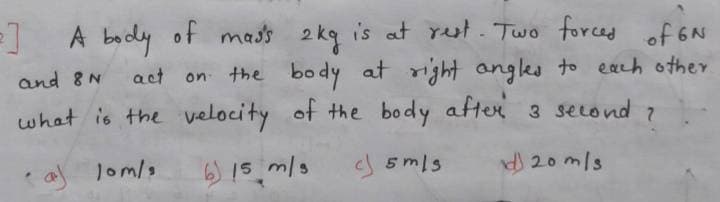 2] A body of mass 2kg is at rest. Two forces of 6N
and 8N act on the body at right angles to each other
what is the velocity of the body after 3 second ?
a) 10m/s b) 15 m/s c) 5m/s d) 20m/s